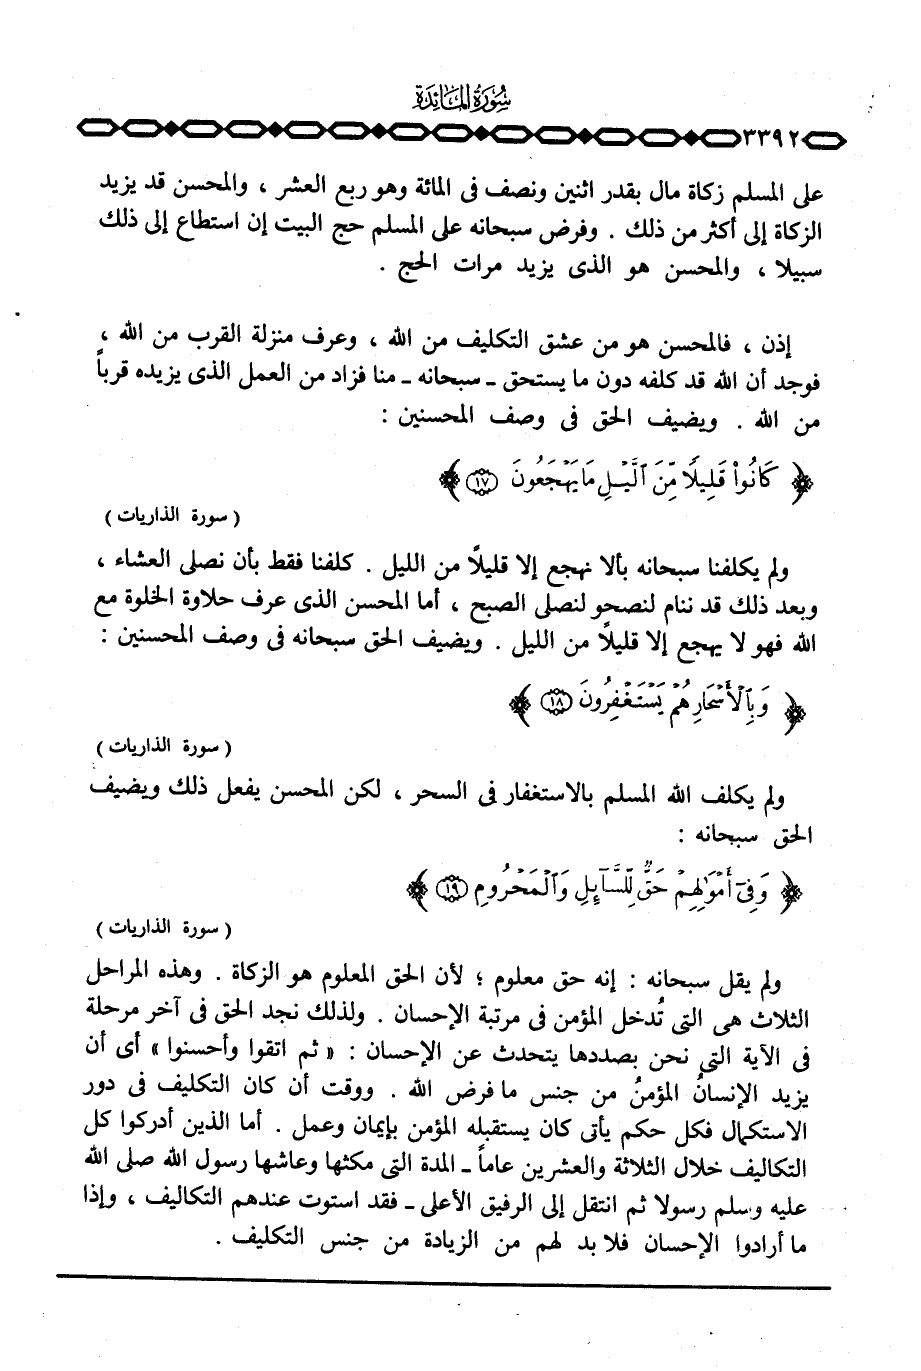 سُورَةُ المَائِدَةِ
٣٣٩٢
على المسلم زكاة مال بقدر اثنين ونصف فى المائة وهو ربع العشر ، والمحسن قد يزيد
الزكاة إلى أكثر من ذلك . وفرض سبحانه على المسلم حج البيت إن استطاع إلى ذلك
سبيلا ، والمحسن هو الذى يزيد مرات الحج .
إذن ، فالمحسن هو من عشق التكليف من الله ، وعرف منزلة القرب من الله ،
فوجد أن الله قد كلفه دون ما يستحق ـ سبحانه ـ منا فزاد من العمل الذى يزيده قرباً
من الله . ويضيف الحق فى وصف المحسنين :
﴿ كَانُوا۟ قَلِيلًا مِّنَ ٱلَّيْلِ مَا يَهْجَعُونَ ١٧ ﴾
( سورة الذاريات )
ولم يكلفنا سبحانه بألا نهجع إلا قليلاً من الليل . كلفنا فقط بأن نصلى العشاء ،
وبعد ذلك قد ننام لنصحو لنصلى الصبح ، أما المحسن الذى عرف حلاوة الخلوة مع
الله فهو لا يهجع إلا قليلاً من الليل . ويضيف الحق سبحانه فى وصف المحسنين :
﴿ وَبِٱلْأَسْحَارِ هُمْ يَسْتَغْفِرُونَ ١٨ ﴾
( سورة الذاريات )
ولم يكلف الله المسلم بالاستغفار فى السحر ، لكن المحسن يفعل ذلك ويضيف
الحق سبحانه :
﴿ وَفِىٓ أَمْوَٰلِهِمْ حَقٌّ لِّلسَّآئِلِ وَٱلْمَحْرُومِ ١٩ ﴾
( سورة الذاريات )
ولم يقل سبحانه : إنه حق معلوم ؛ لأن الحق المعلوم هو الزكاة . وهذه المراحل
الثلاث هى التى تُدخل المؤمن فى مرتبة الإحسان . ولذلك نجد الحق فى آخر مرحلة
فى الآية التى نحن بصددها يتحدث عن الإحسان : « ثم اتقوا وأحسنوا » أى أن
يزيد الإنسانُ المؤمنُ من جنس ما فرض الله . ووقت أن كان التكليف فى دور
الاستكمال فكل حكم يأتى كان يستقبله المؤمن بإيمان وعمل . أما الذين أدركوا كل
التكاليف خلال الثلاثة والعشرين عاماً ـ المدة التى مكثها وعاشها رسول الله صلى الله
عليه وسلم رسولا ثم انتقل إلى الرفيق الأعلى ـ فقد استوت عندهم التكاليف ، وإذا
ما أرادوا الإحسان فلا بد لهم من الزيادة من جنس التكليف .